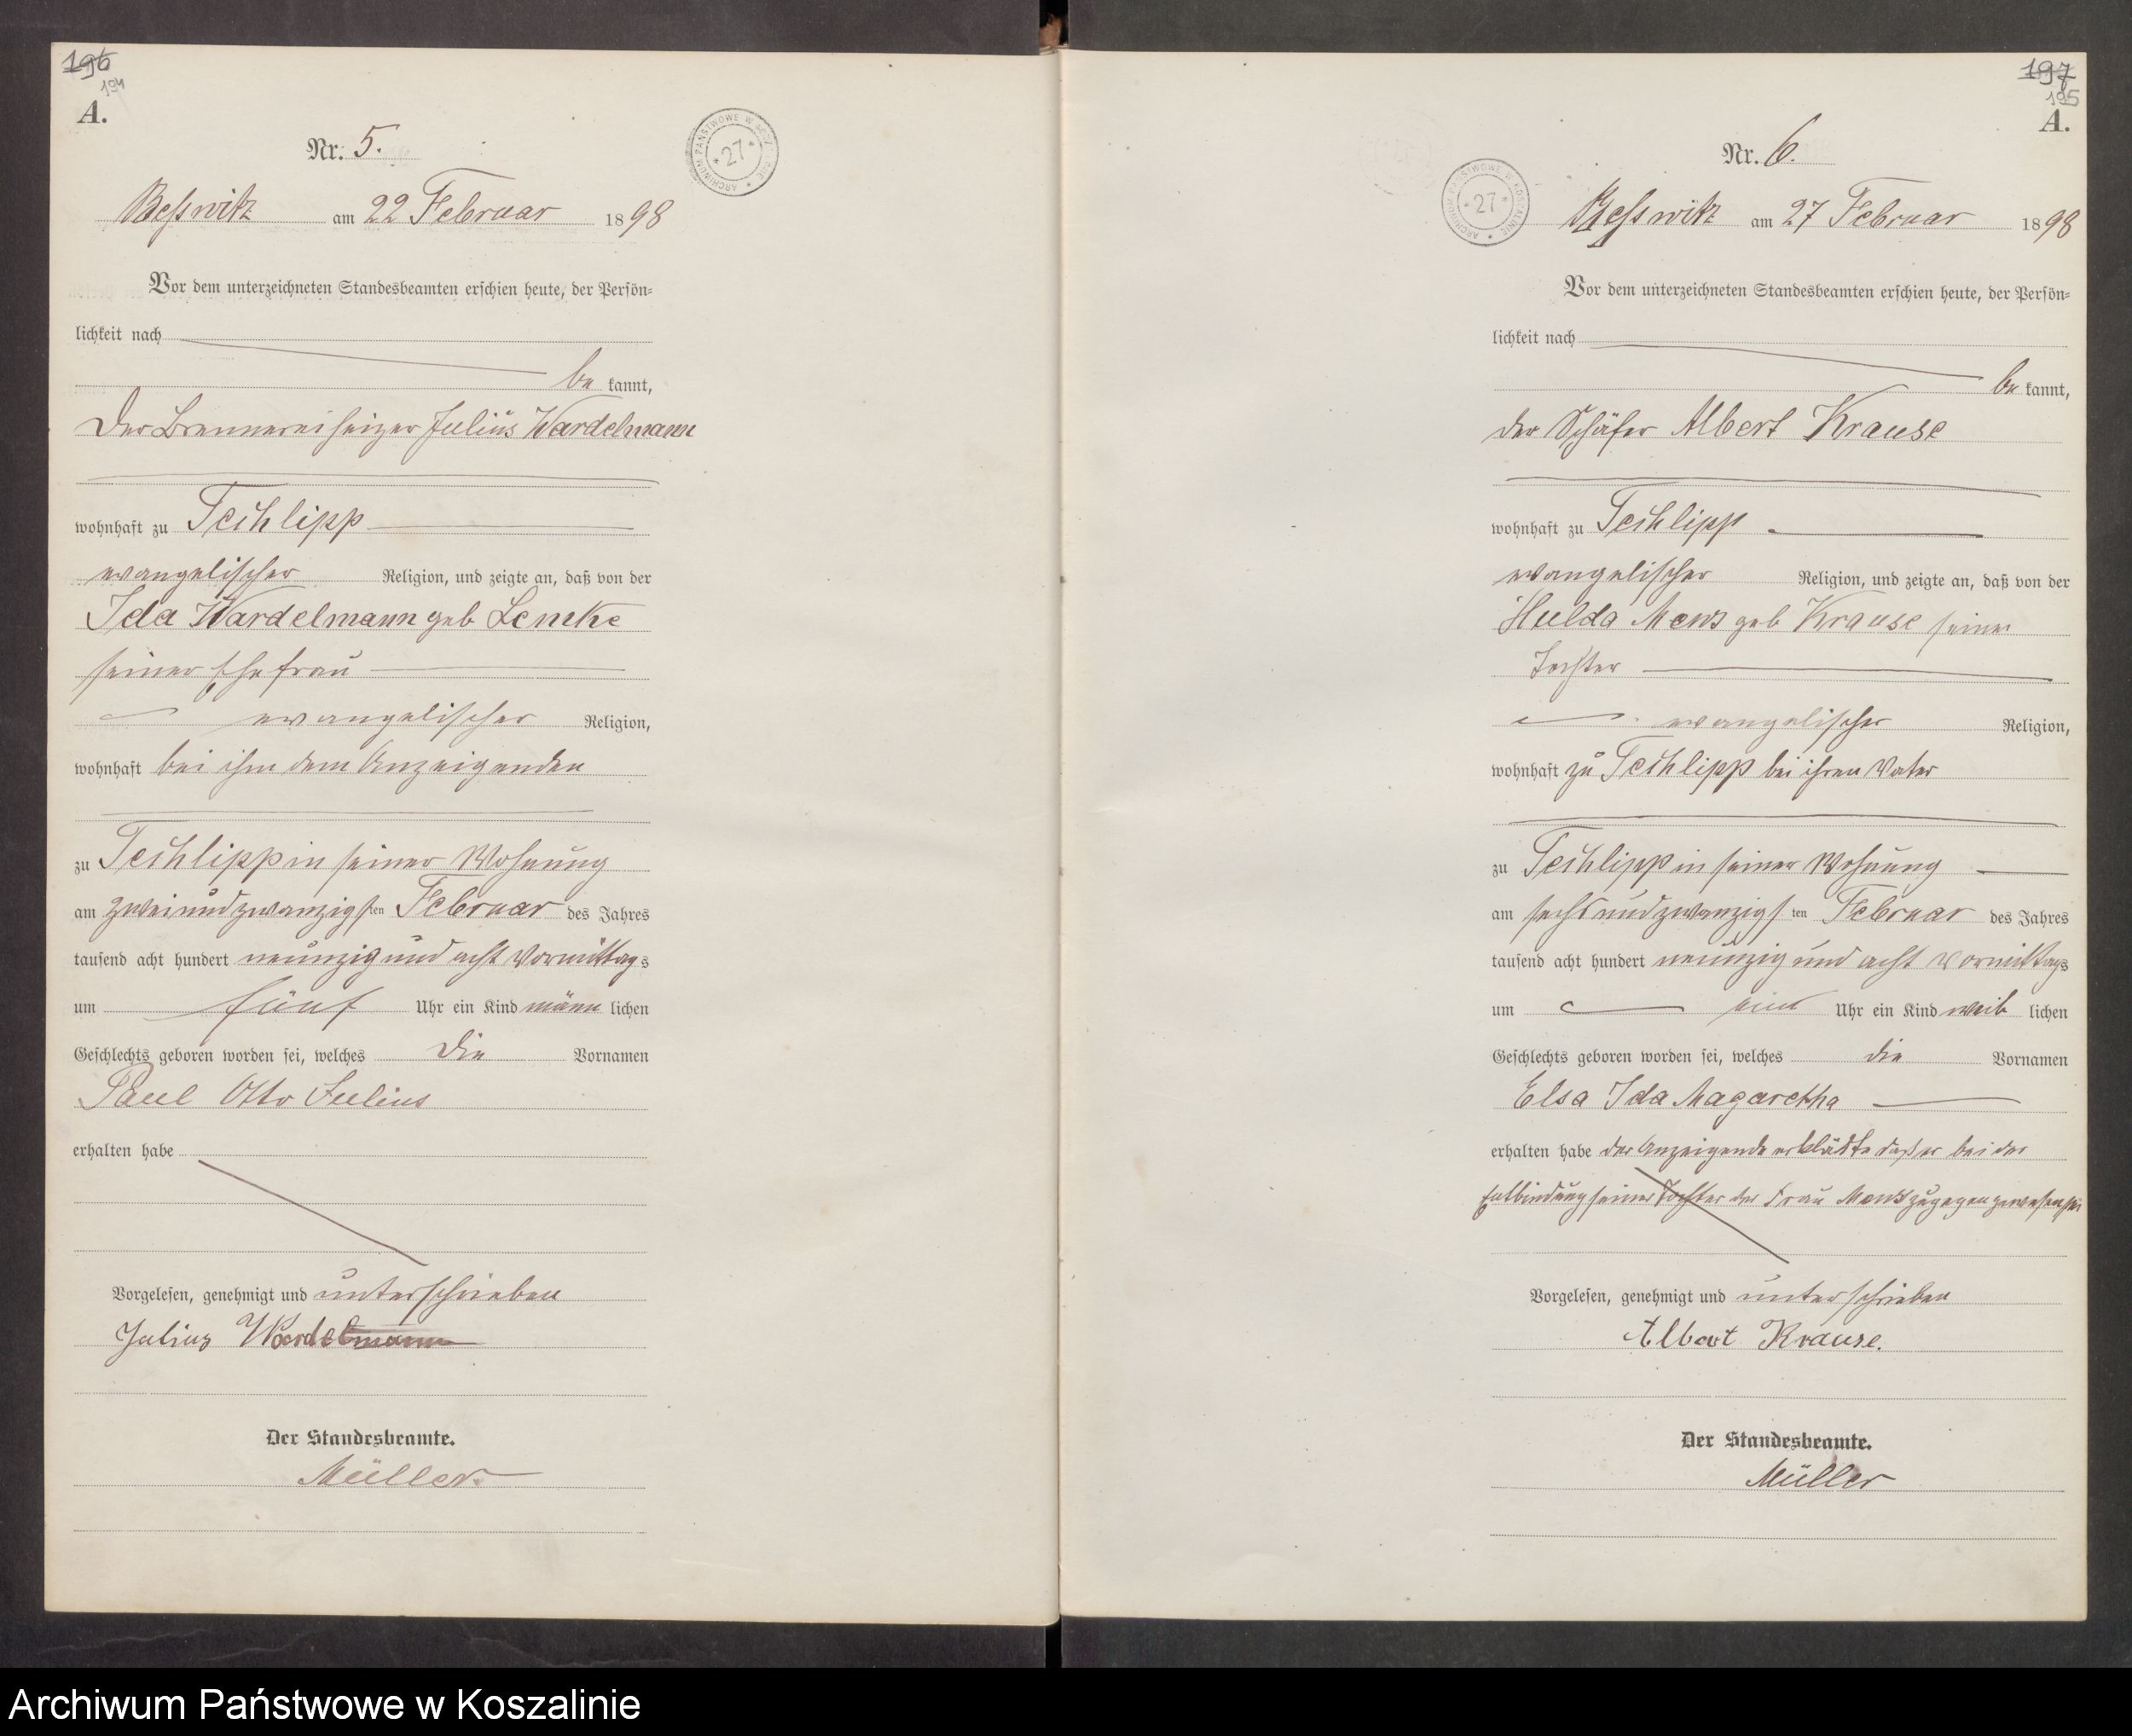 196
194
A.
Nr. 5.
ARCHIWUM PAŃSTWOWE W KOSZALINIE * 27 *
Beßwitz am 22 Februar 1898
Vor dem unterzeichneten Standesbeamten erschien heute, der Persön=
lichkeit nach
be kannt,
Der Brennereiheizer Julius Wardelmann
wohnhaft zu Techlipp
evangelischer Religion, und zeigte an, daß von der
Ida Wardelmann geb Lemke
seiner Ehefrau
evangelischer Religion,
wohnhaft bei ihm dem Anzeigenden
zu Techlipp in seiner Wohnung
am zweiundzwanzigsten Februar des Jahres
tausend acht hundert neunzig und acht Vormittags
um fünf Uhr ein Kind männlichen
Geschlechts geboren worden sei, welches die Vornamen
Paul Otto Julius
erhalten habe
Vorgelesen, genehmigt und unterschrieben
Julius Wardelmann
Der Standesbeamte.
Müller.
197
195
A.
Nr. 6.
ARCHIWUM PAŃSTWOWE W KOSZALINIE * 27 *
Beßwitz am 27 Februar 1898
Vor dem unterzeichneten Standesbeamten erschien heute, der Persön=
lichkeit nach
be kannt,
der Schäfer Albert Krause
wohnhaft zu Techlipp
evangelischer Religion, und zeigte an, daß von der
Hulda Mews geb Krause seiner
Tochter
evangelischer Religion,
wohnhaft zu Techlipp bei ihren Vater
zu Techlipp in seiner Wohnung
am sechsundzwanzigsten Februar des Jahres
tausend acht hundert neunzig und acht Vormittags
um ein Uhr ein Kind weiblichen
Geschlechts geboren worden sei, welches die Vornamen
Elsa Ida Magaretha
erhalten habe der Anzeigende erklärte daß er bei der
Entbindung seiner Tochter der Frau Mews zugegen gewesen sei
Vorgelesen, genehmigt und unterschrieben
Albert Krause.
Der Standesbeamte.
Müller
Archiwum Państwowe w Koszalinie